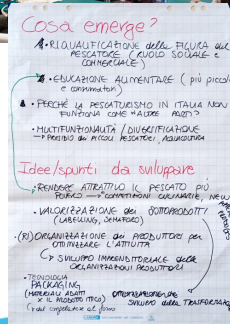 Cosa emerge?
• RIQUALIFICAZIONE della FIGURA del
PESCATORE (RUOLO SOCIALE e
COMMERCIALE)
• EDUCAZIONE ALIMENTARE (più piccoli
e consumatori)
• PERCHÉ LA PESCATURISMO IN ITALIA NON
FUNZIONA COME "ALTRE PARTI?
• MULTIFUNZIONALITÀ / DIVERSIFICAZIONE
→ PRESIDIO dei PICCOLI PESCATORI
Idee/spunti da sviluppare
- RENDERE ATTRATTIVO IL PESCATO PIÙ
→ COMPETIZIONI CULINARIE,
- VALORIZZAZIONE dei SOTTOPRODOTTI
(LABELING, SEMAFORO)
- (RI)ORGANIZZAZIONE dei PRODUTTORI per
OTTIMIZZARE L'ATTIVITÀ
→ SVILUPPO IMPRENDITORIALE delle
ORGANIZZAZIONI PRODUTTORI
- TECNOLOGIA
PACKAGING
(MATERIALI ADATTI
X IL PRODOTTO ITTICO)
SVILUPPO della TRASFORMAZIONE